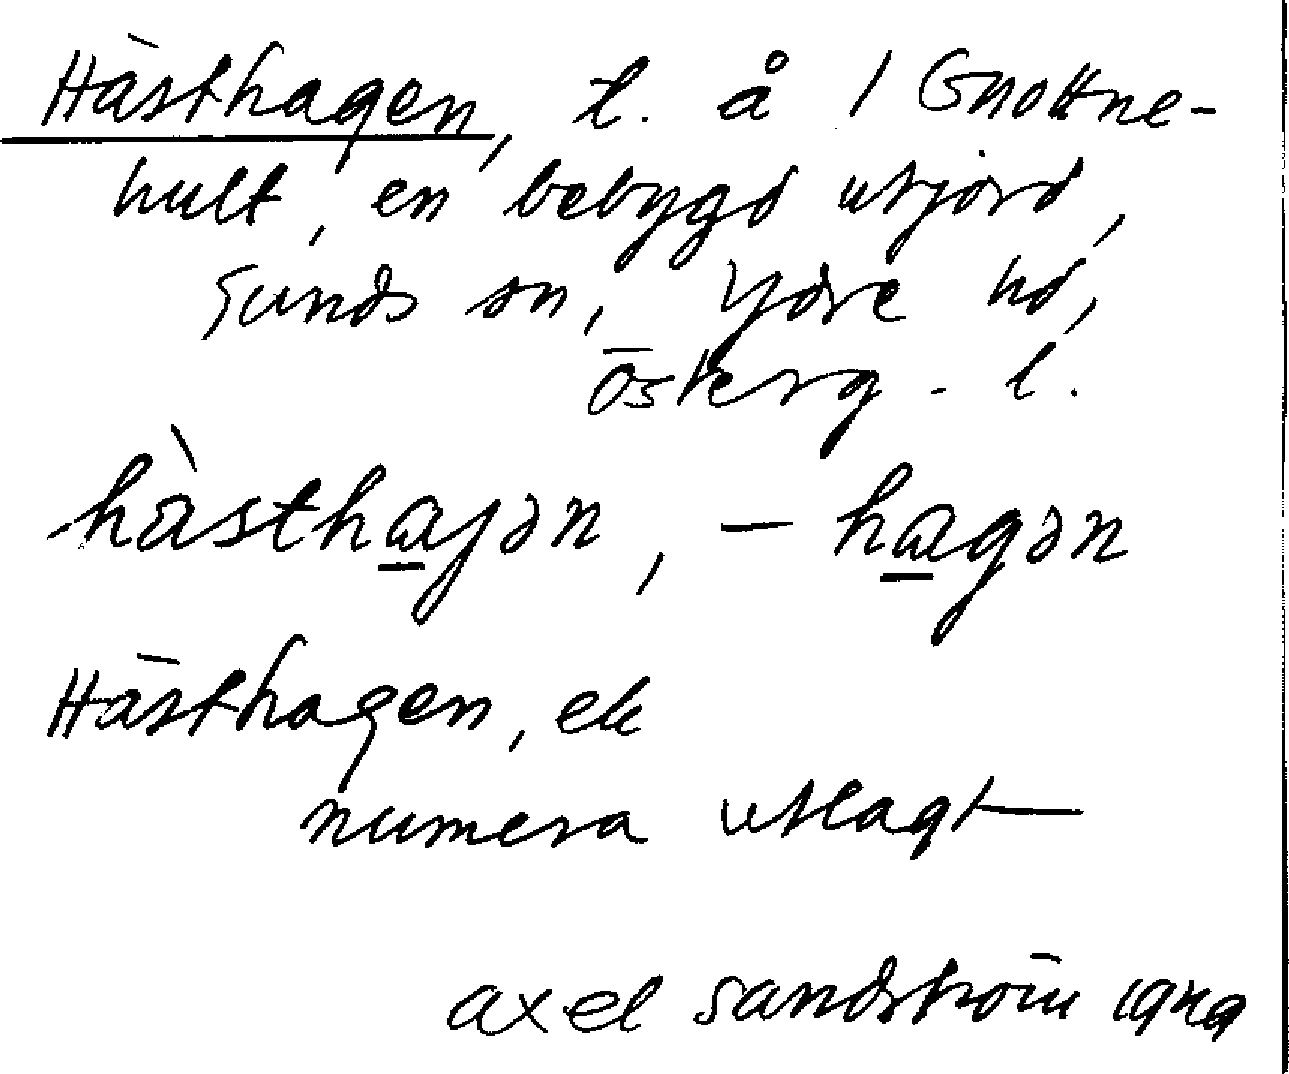 Hästhagen, t. å 1 Gnottne-
hult, en bebygd utjord,
Sunds sn, Ydre hd,
Österg. l.
hàsthaɟən, – hagən
Hästhagen, ek
numera utlagt
axel sandström